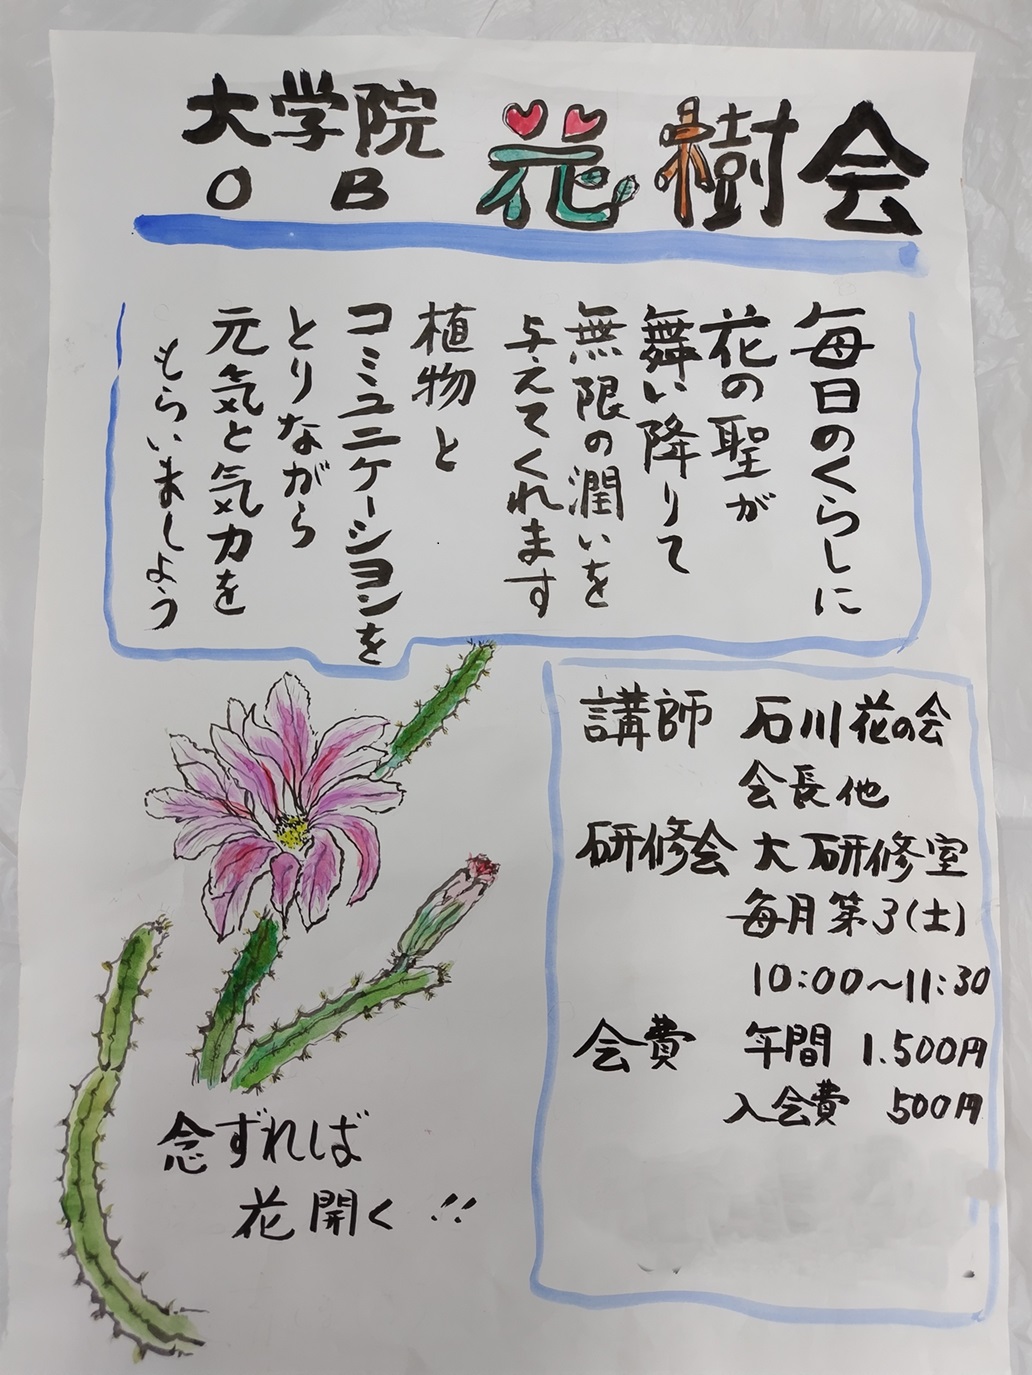 大学院
OB
花樹会
毎日のくらしに
花の聖が
舞い降りて
無限の潤いを
与えてくれます
植物と
コミュニケーションを
とりながら
元気と気力を
もらいましょう
講師 石川花の会
会長他
研修会 大研修室
毎月第3(土)
10:00〜11:30
会費 年間 1.500円
入会費 500円
念ずれば
花開く!!